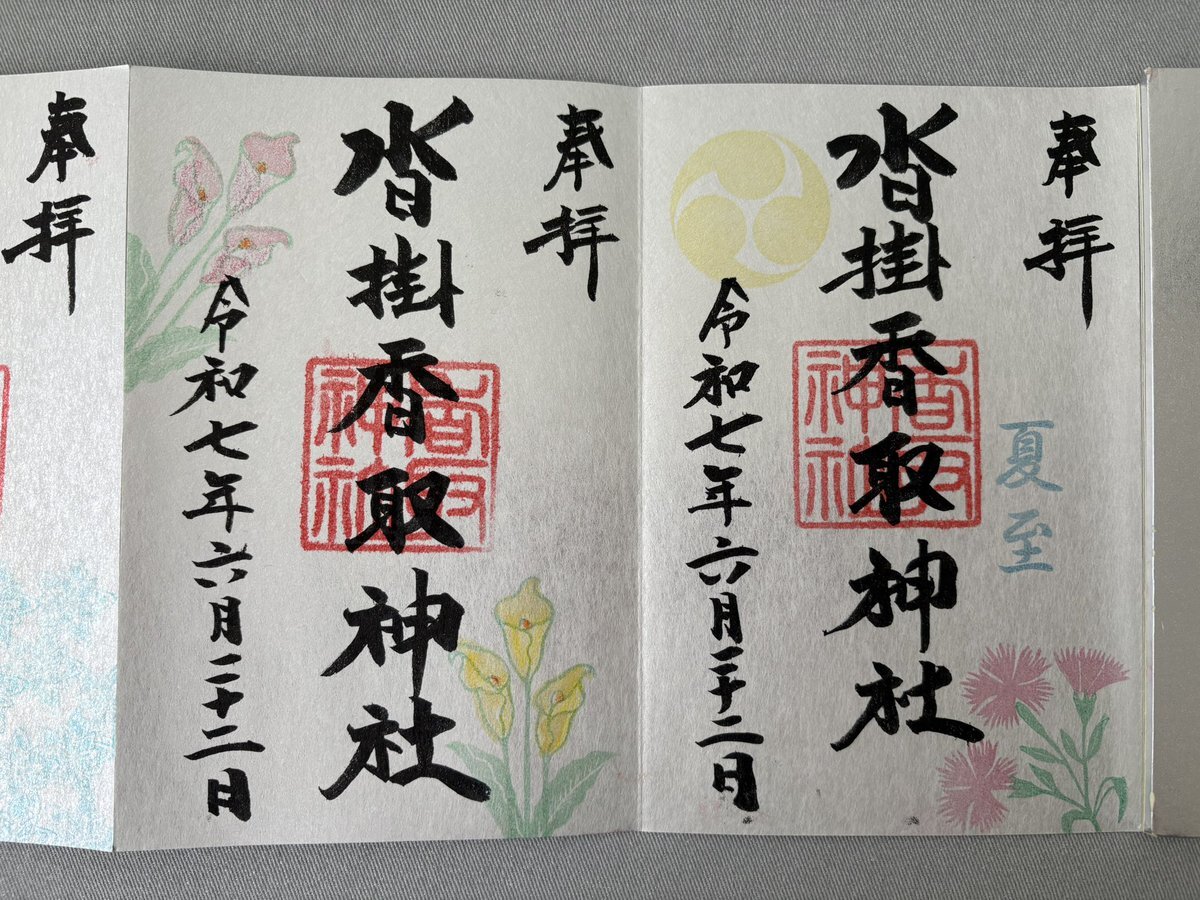 奉拝
夏至
沓掛香取神社
香取神社
令和七年六月二十二日
奉拝
沓掛香取神社
香取神社
令和七年六月二十二日
奉拝